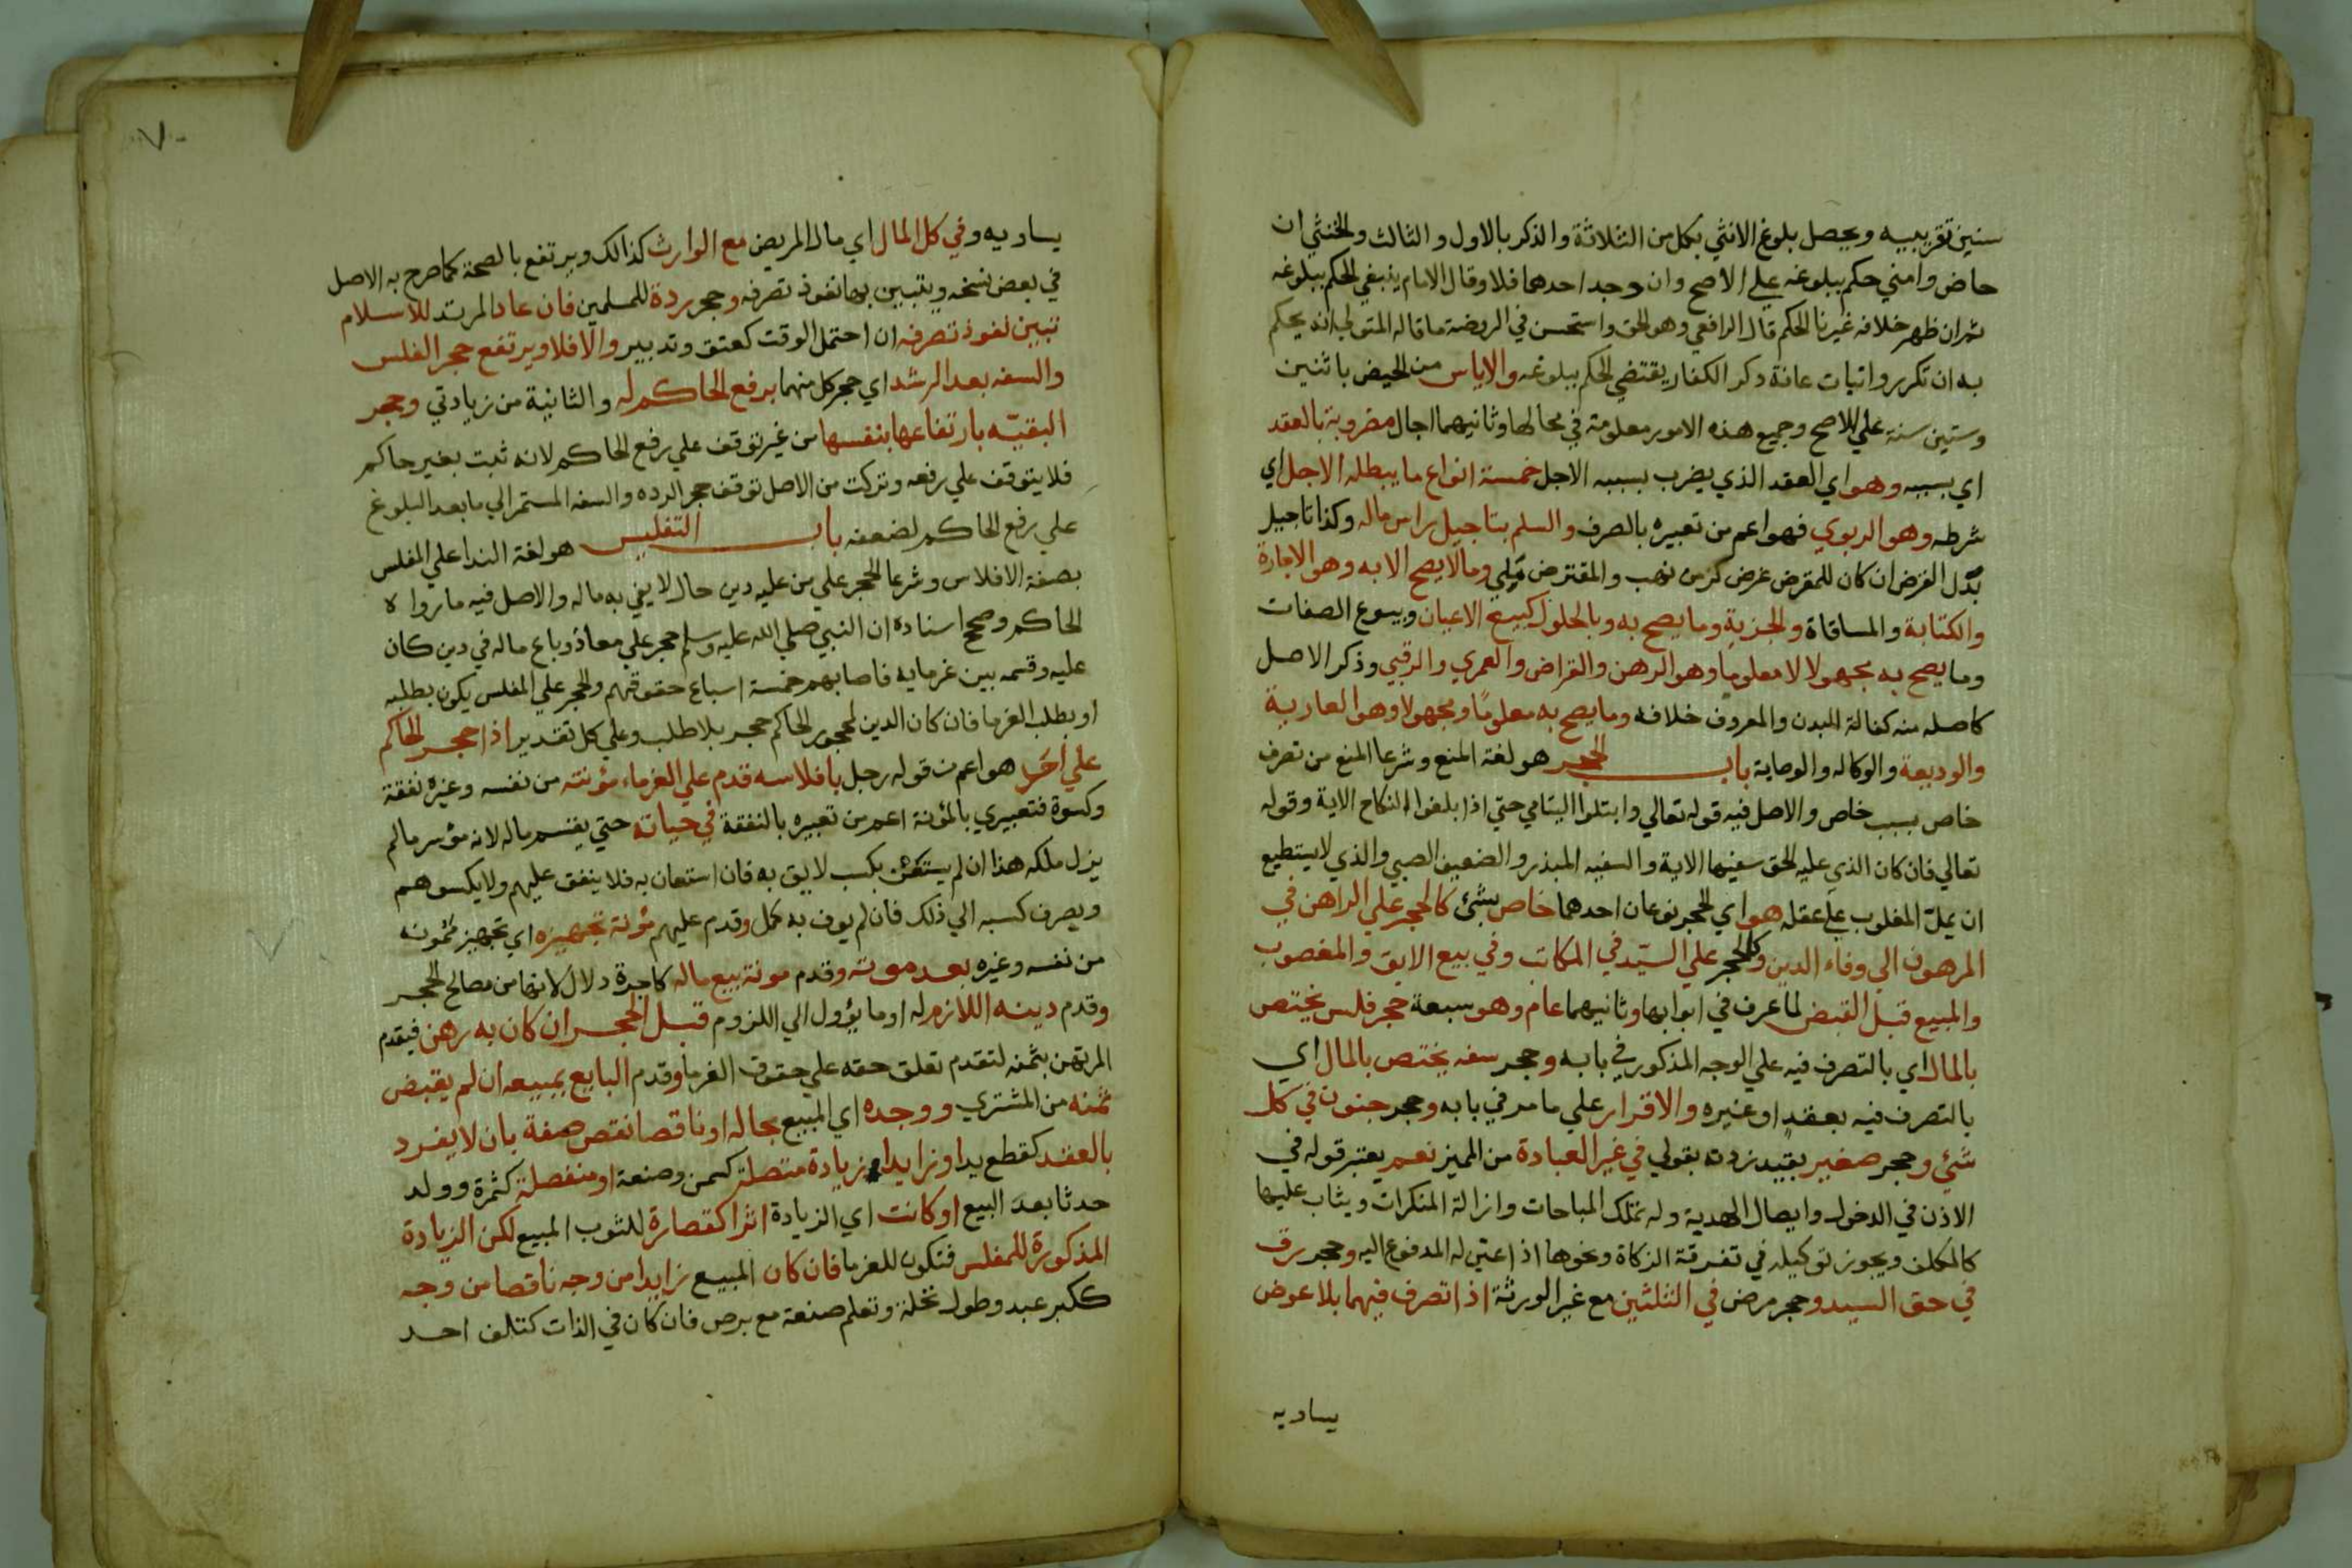 سنين تقريبيه ويحصل بلوغ الانثي بكل من الثلاثة والذكر بالاول والثالث والخنثي ان
حاض وامني حكم ببلوغه علي الاصح وان وجد احدهما فلا وقال الامام ينبغي الحكم ببلوغه
ثم ان ظهر خلافه غيرنا الحكم قال الرافعي وهو الحق واستحسن في الروضة ما قاله المتولي انه يحكم
به ان تكرر واتبات عانة ذكر الكفار يقتضي الحكم ببلوغه والاياس من الحيض باثنين
وستين سنة علي الاصح وجميع هذه الامور معلومة في محالها وثانيهما اجال مضروبة بالعقد
اي بسببه وهو اي العقد الذي يضرب بسببه الاجل خمسة انواع ما يبطله الاجل اي
شرطه وهو الربوي فهو اعم من تعبيره بالصرف والسلم بتاجيل راس ماله وكذا تاجيل
بدل القرض ان كان للمقرض غرض كزمن نهب والمقترض ملي وما لا يصح الا به وهو الاجارة
والكتابة والمساقاة والجزية وما يصح به وبالحلول كبيع الاعيان وبيوع الصفات
وما يصح به مجهولا لا معلوما وهو الرهن والقراض والعمري والرقبي وذكر الاصل
كاصله منه كفالة البدن والمعروف خلافه وما يصح به معلوما ومجهولا وهو العارية
والوديعة والوكاله والوصاية باب الحجر هو لغة المنع وشرعا المنع من تصرف
خاص بسبب خاص والاصل فيه قوله تعالي وابتلوا اليتامي حتي اذا بلغوا النكاح الاية وقوله
تعالي فان كان الذي عليه الحق سفيها الاية والسفيه المبذر والضعيف الصبي والذي لا يستطيع
ان يملّ المغلوب علي عقله هو اي الحجر نوعان احدهما خاص بشئ كالحجر علي الراهن في
المرهون الي وفاء الدين وكالحجر علي السيّد في المكاتب وفي بيع الابق والمغصوب
والمبيع قبل القبض لما عرف في ابوابها وثانيهما عام وهو سبعة حجر فلس يختص
بالمال اي بالتصرف فيه علي الوجه المذكور في بابه وحجر سفه يختص بالمال اي
بالتصرف فيه بعقد او غيره والاقرار علي ما مر في بابه وحجر جنون في كل
شئ وحجر صغير بقيد زدته بقولي في غير العبادة من المميز نعم يعتبر قوله في
الاذن في الدخول وايصال الهدية وله تملك المباحات وازالة المنكرات ويثاب عليها
كالمكلف ويجوز توكيله في تفرقة الزكاة ونحوها اذا عين له المدفوع اليه وحجر رق
في حق السيد وحجر مرض في الثلثين مع غير الورثة اذا تصرف فيهما بلا عوض
يساويه
يساويه وفي كل المال اي مال المريض مع الوارث كذالك ويرتفع بالصحة كما صرح به الاصل
في بعض نسخه ويتبين بها نفوذ تصرفه وحجر ردة للمسلمين فان عاد المرتد للاسلام
تبين نفوذ تصرفه ان احتمل الوقت كعتق وتدبير والا فلا ويرتفع حجر الفلس
والسفه بعد الرشد اي حجر كل منهما برفع الحاكم له والثانية من زيادتي وحجر
البقيّه بارتفاعها بنفسها من غير توقف علي رفع الحاكم لانه ثبت بغير حاكم
فلا يتوقف علي رفعه وتركت من الاصل توقف حجر الرده والسفه المستمر الي ما بعد البلوغ
علي رفع الحاكم لضعفه باب التفليس هو لغة الندا علي المفلس
بصفة الافلاس وشرعا الحجر علي من عليه دين حال لا يفي به ماله والاصل فيه ما رواه
الحاكم وصحح اسناده ان النبي صلي الله عليه وسلم حجر علي معاذ وباع ماله في دين كان
عليه وقسمه بين غرمايه فاصابهم خمسة اسباع حقوقهم والحجر علي المفلس يكون بطلبه
او بطلب الغرما فان كان الدين لمحجور الحاكم حجر بلا طلب وعلي كل تقدير اذا حجر الحاكم
علي احد هو اعم من قوله رجل بافلاسه قدم علي الغرماء مؤنته من نفسه وغيره نفقة
وكسوة فتعبيري بالمؤنة اعم من تعبيره بالنفقة في حياته حتي يقسم ماله لانه مؤسر مالم
يزل ملكه هذا ان لم يستغن بكسب لايق به فان استعان به فلا ينفق عليهم ولا يكسوهم
ويصرف كسبه الي ذلك فان لم يوف به كمل وقدم عليهم مؤنة تجهيزه اي تجهيز ممونه
من نفسه وغيره بعد موته وقدم مونة بيع ماله كاجرة دلال لانها من مصالح الحجر
وقدم دينه اللازم له او ما يؤول الي اللزوم قبل الحجر ان كان به رهن فيقدم
المرتهن بثمنه لتقدم تعلق حقه علي حقوق الغرما وقدم البايع بمبيعه ان لم يقبض
ثمنه من المشتري ووجده اي المبيع بحاله او ناقصا نقص صفة بان لا يفرد
بالعقد كقطع يد او زايدا زيادة متصلة كسمن وصنعة او منفصلة كثمرة وولد
حدثا بعد البيع او كانت اي الزيادة اثرا كقصارة للثوب المبيع لكن الزيادة
المذكورة للمفلس فتكون للغرما فان كان المبيع زايدا من وجه ناقصا من وجه
ككبر عبد وطول نخلة وتعلم صنعة مع برص فان كان في الذات كتلف احد